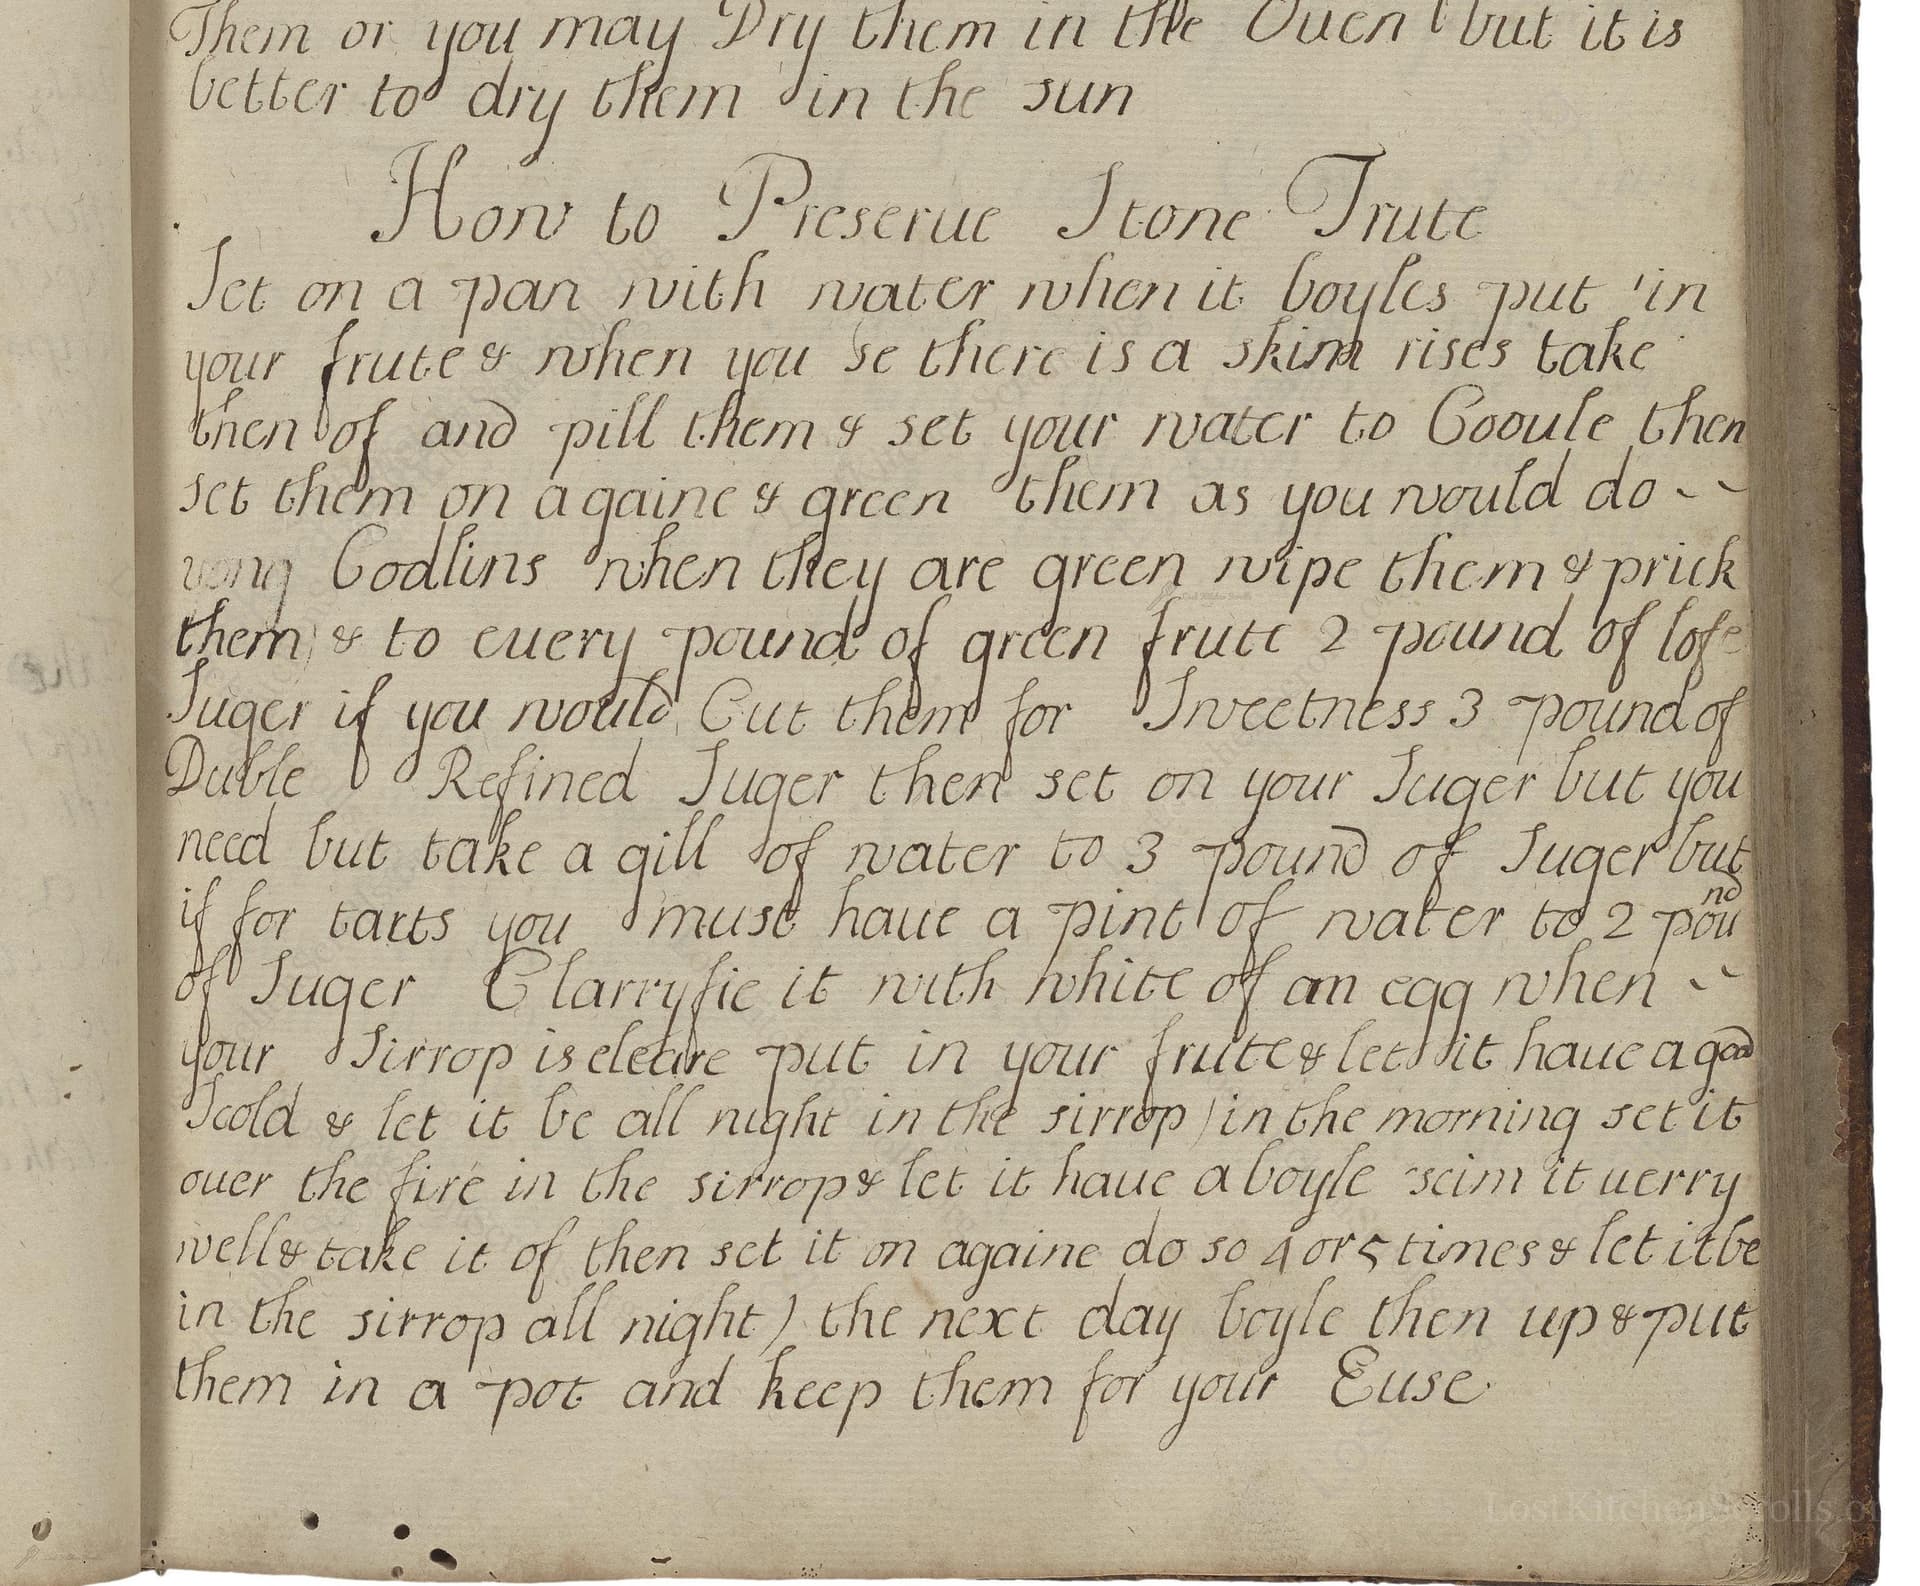 Them or you may Dry them in the Ouen but it is
better to dry them in the sun
How to Preserue Stone Frute
Set on a pan with water when it boyles put in
your frute & when you se there is a skim rises take
then of and pill them & set your water to Cooule then
set them on againe & green them as you would do
Codlins when they are green wipe them & prick
them & to euery pound of green frute 2 pound of lofe
Suger if you would Cut them for Sweetness 3 pound of
Duble Refined Suger then set on your Suger but you
need but take a gill of water to 3 pound of Suger but
if for tarts you must haue a pint of water to 2 pound
of Suger Clarryfie it with white of an egg when
your Sirrop is cleare put in your frute & let it haue a good
Scold & let it be all night in the sirrop) in the morning set it
ouer the fire in the sirrop & let it haue a boyle scim it uerry
well & take it of then set it on againe do so 4 or 5 times & let it be
in the sirrop all night) the next day boyle then up & put
them in a pot and keep them for your Euse
LostKitchenScrolls.or